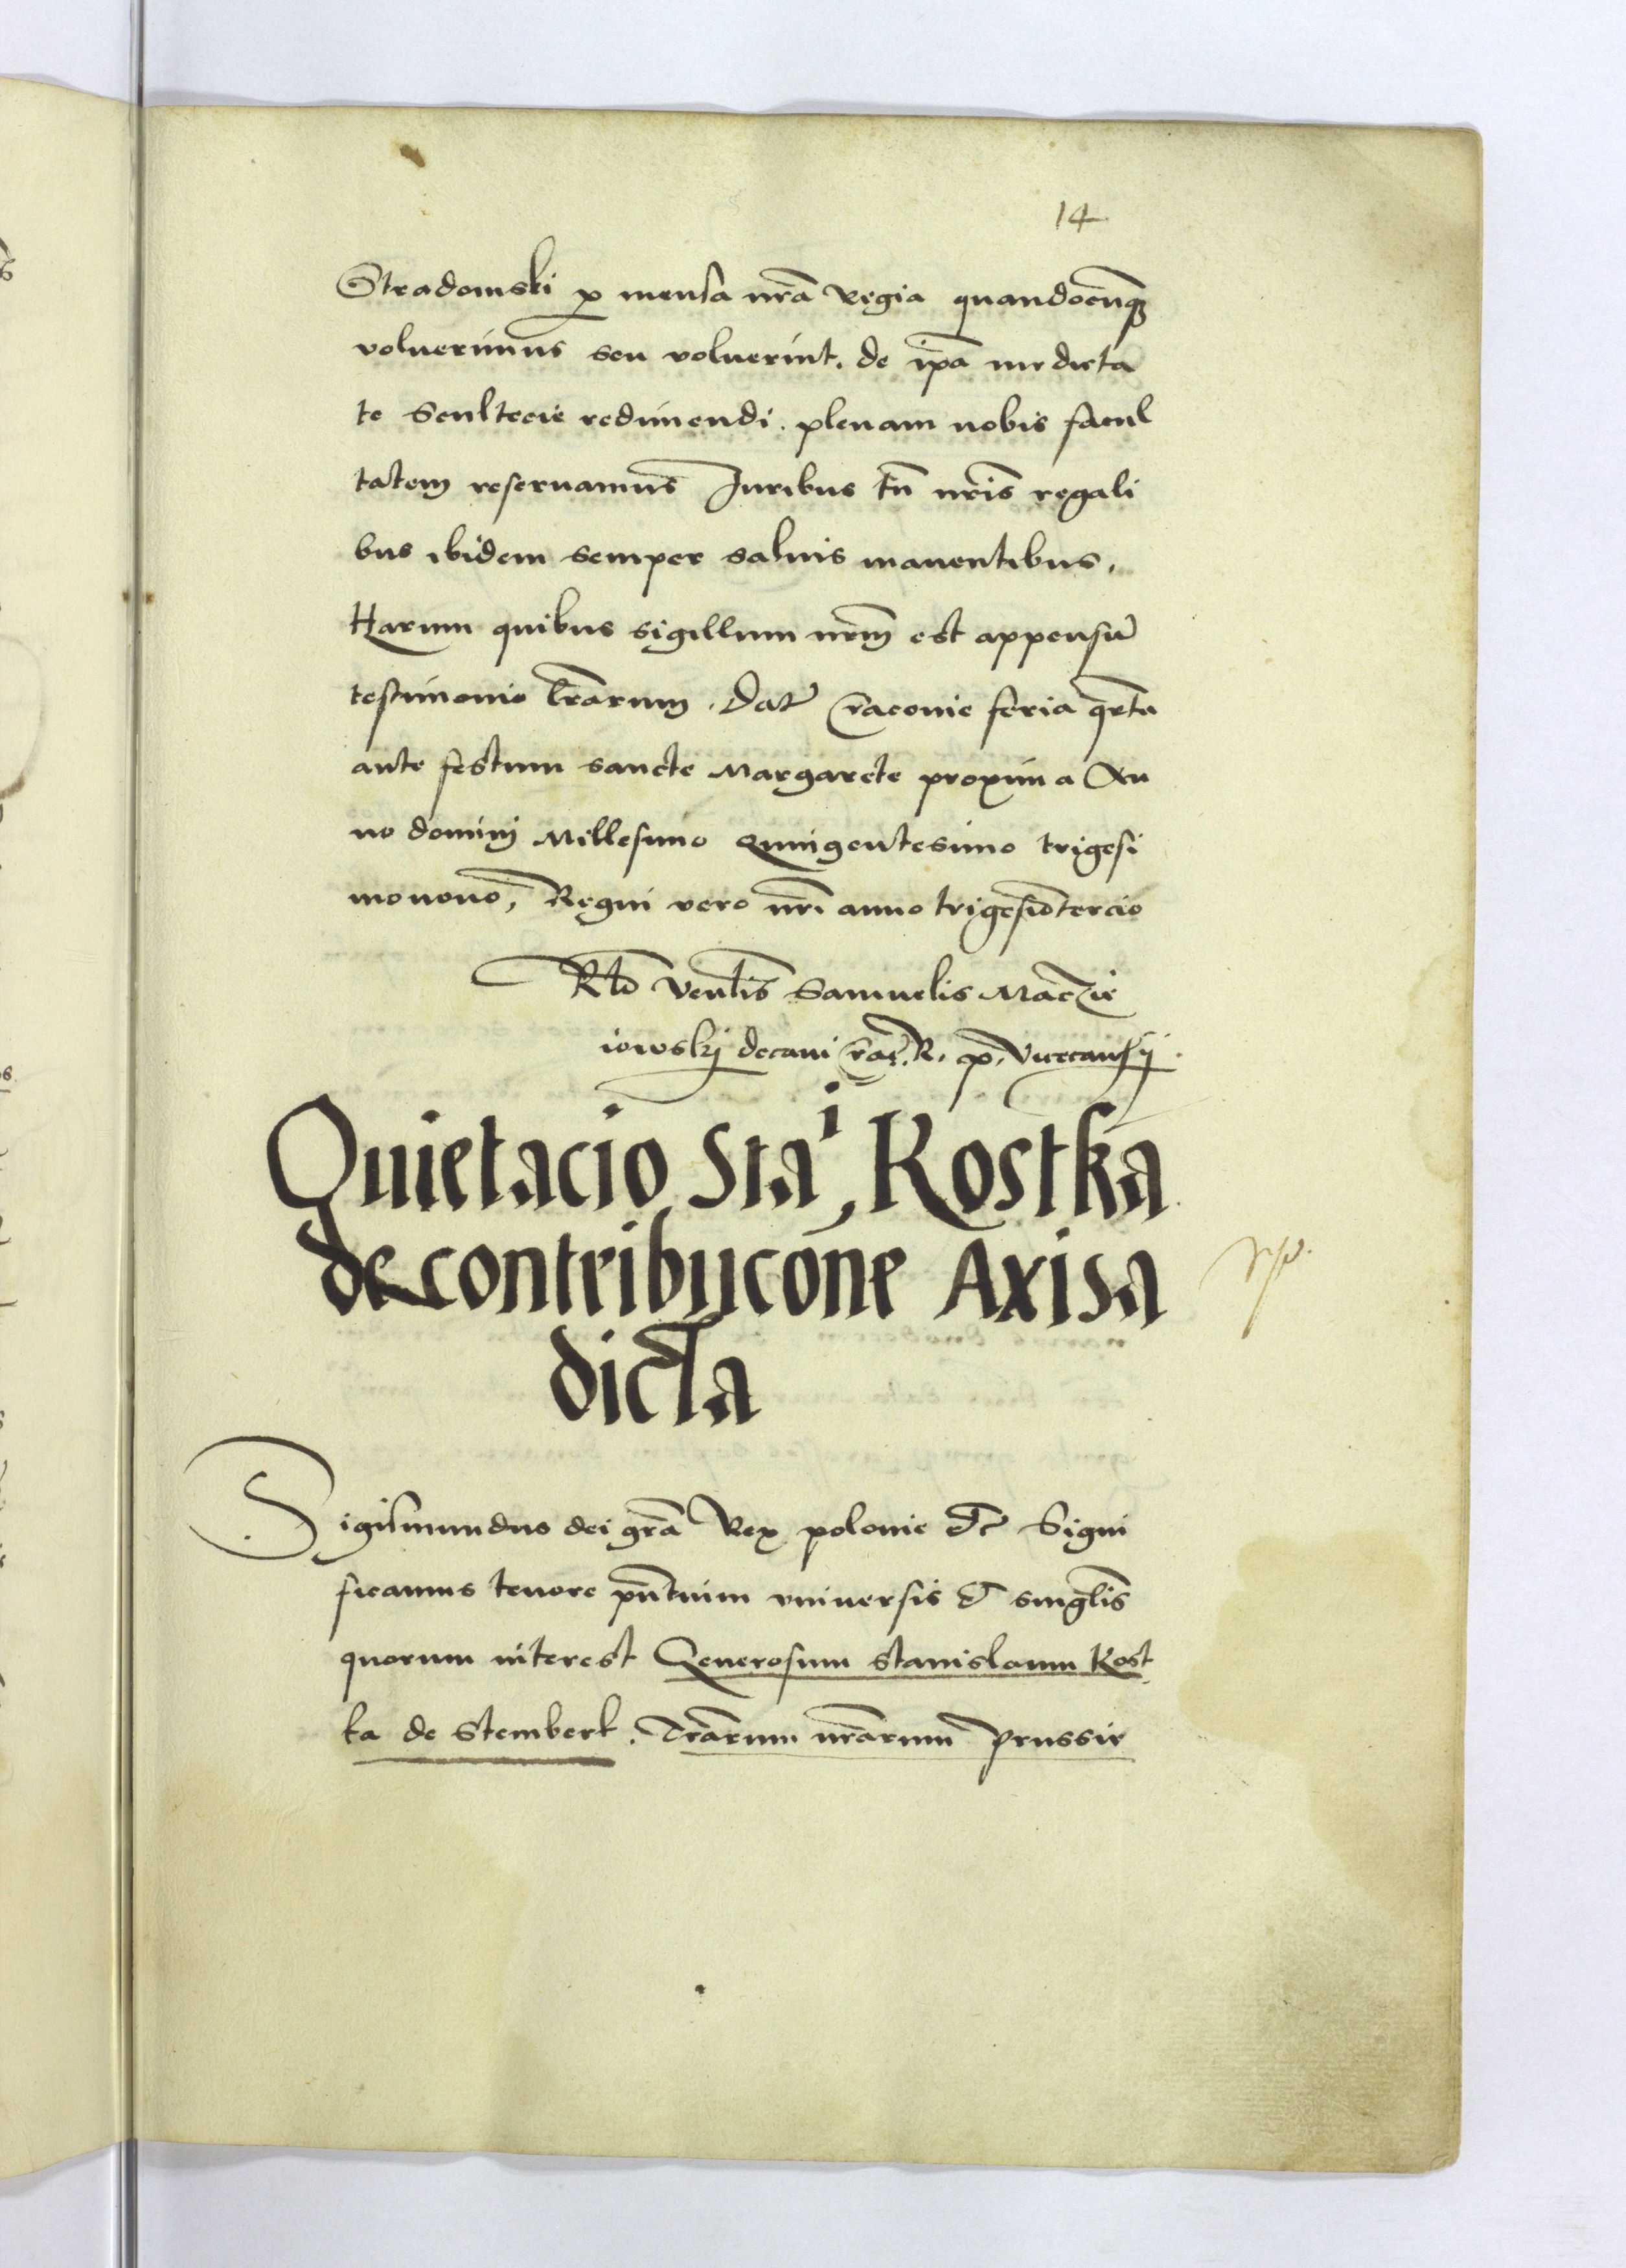 14
Stradomski p mensa nrã Regia quandocunq
voluerimus seu voluerint. de ipã medieta
te Scultecie redimendi. plenam nobis facul
tatem reseruamus Juribus tñ nris regali
bus ibidem semper saluis manentibus.
Harum quibus sigillum nrm est appensũ
testimonio lrarum. Dat Cracouie feria qrta
ante festum sancte Margarete proxima An
no domini Millesimo Quingentesimo trigesi
monono, Regni vero nri anno trigesiotercio
Rlo Venlis Samuelis Maczie
iowskij decani Crac. R. p. Vicecancij.
Quietacio Stai, Kostka
de contribucone Axisa
dicta
Sigismundus dei gra Rex polonie &c Signi
ficamus tenore pñtium vniuersis & singlis
quorum interest Generosum Stanislaum Kost
ka de Stemberk. Trarum nrarum Prussie